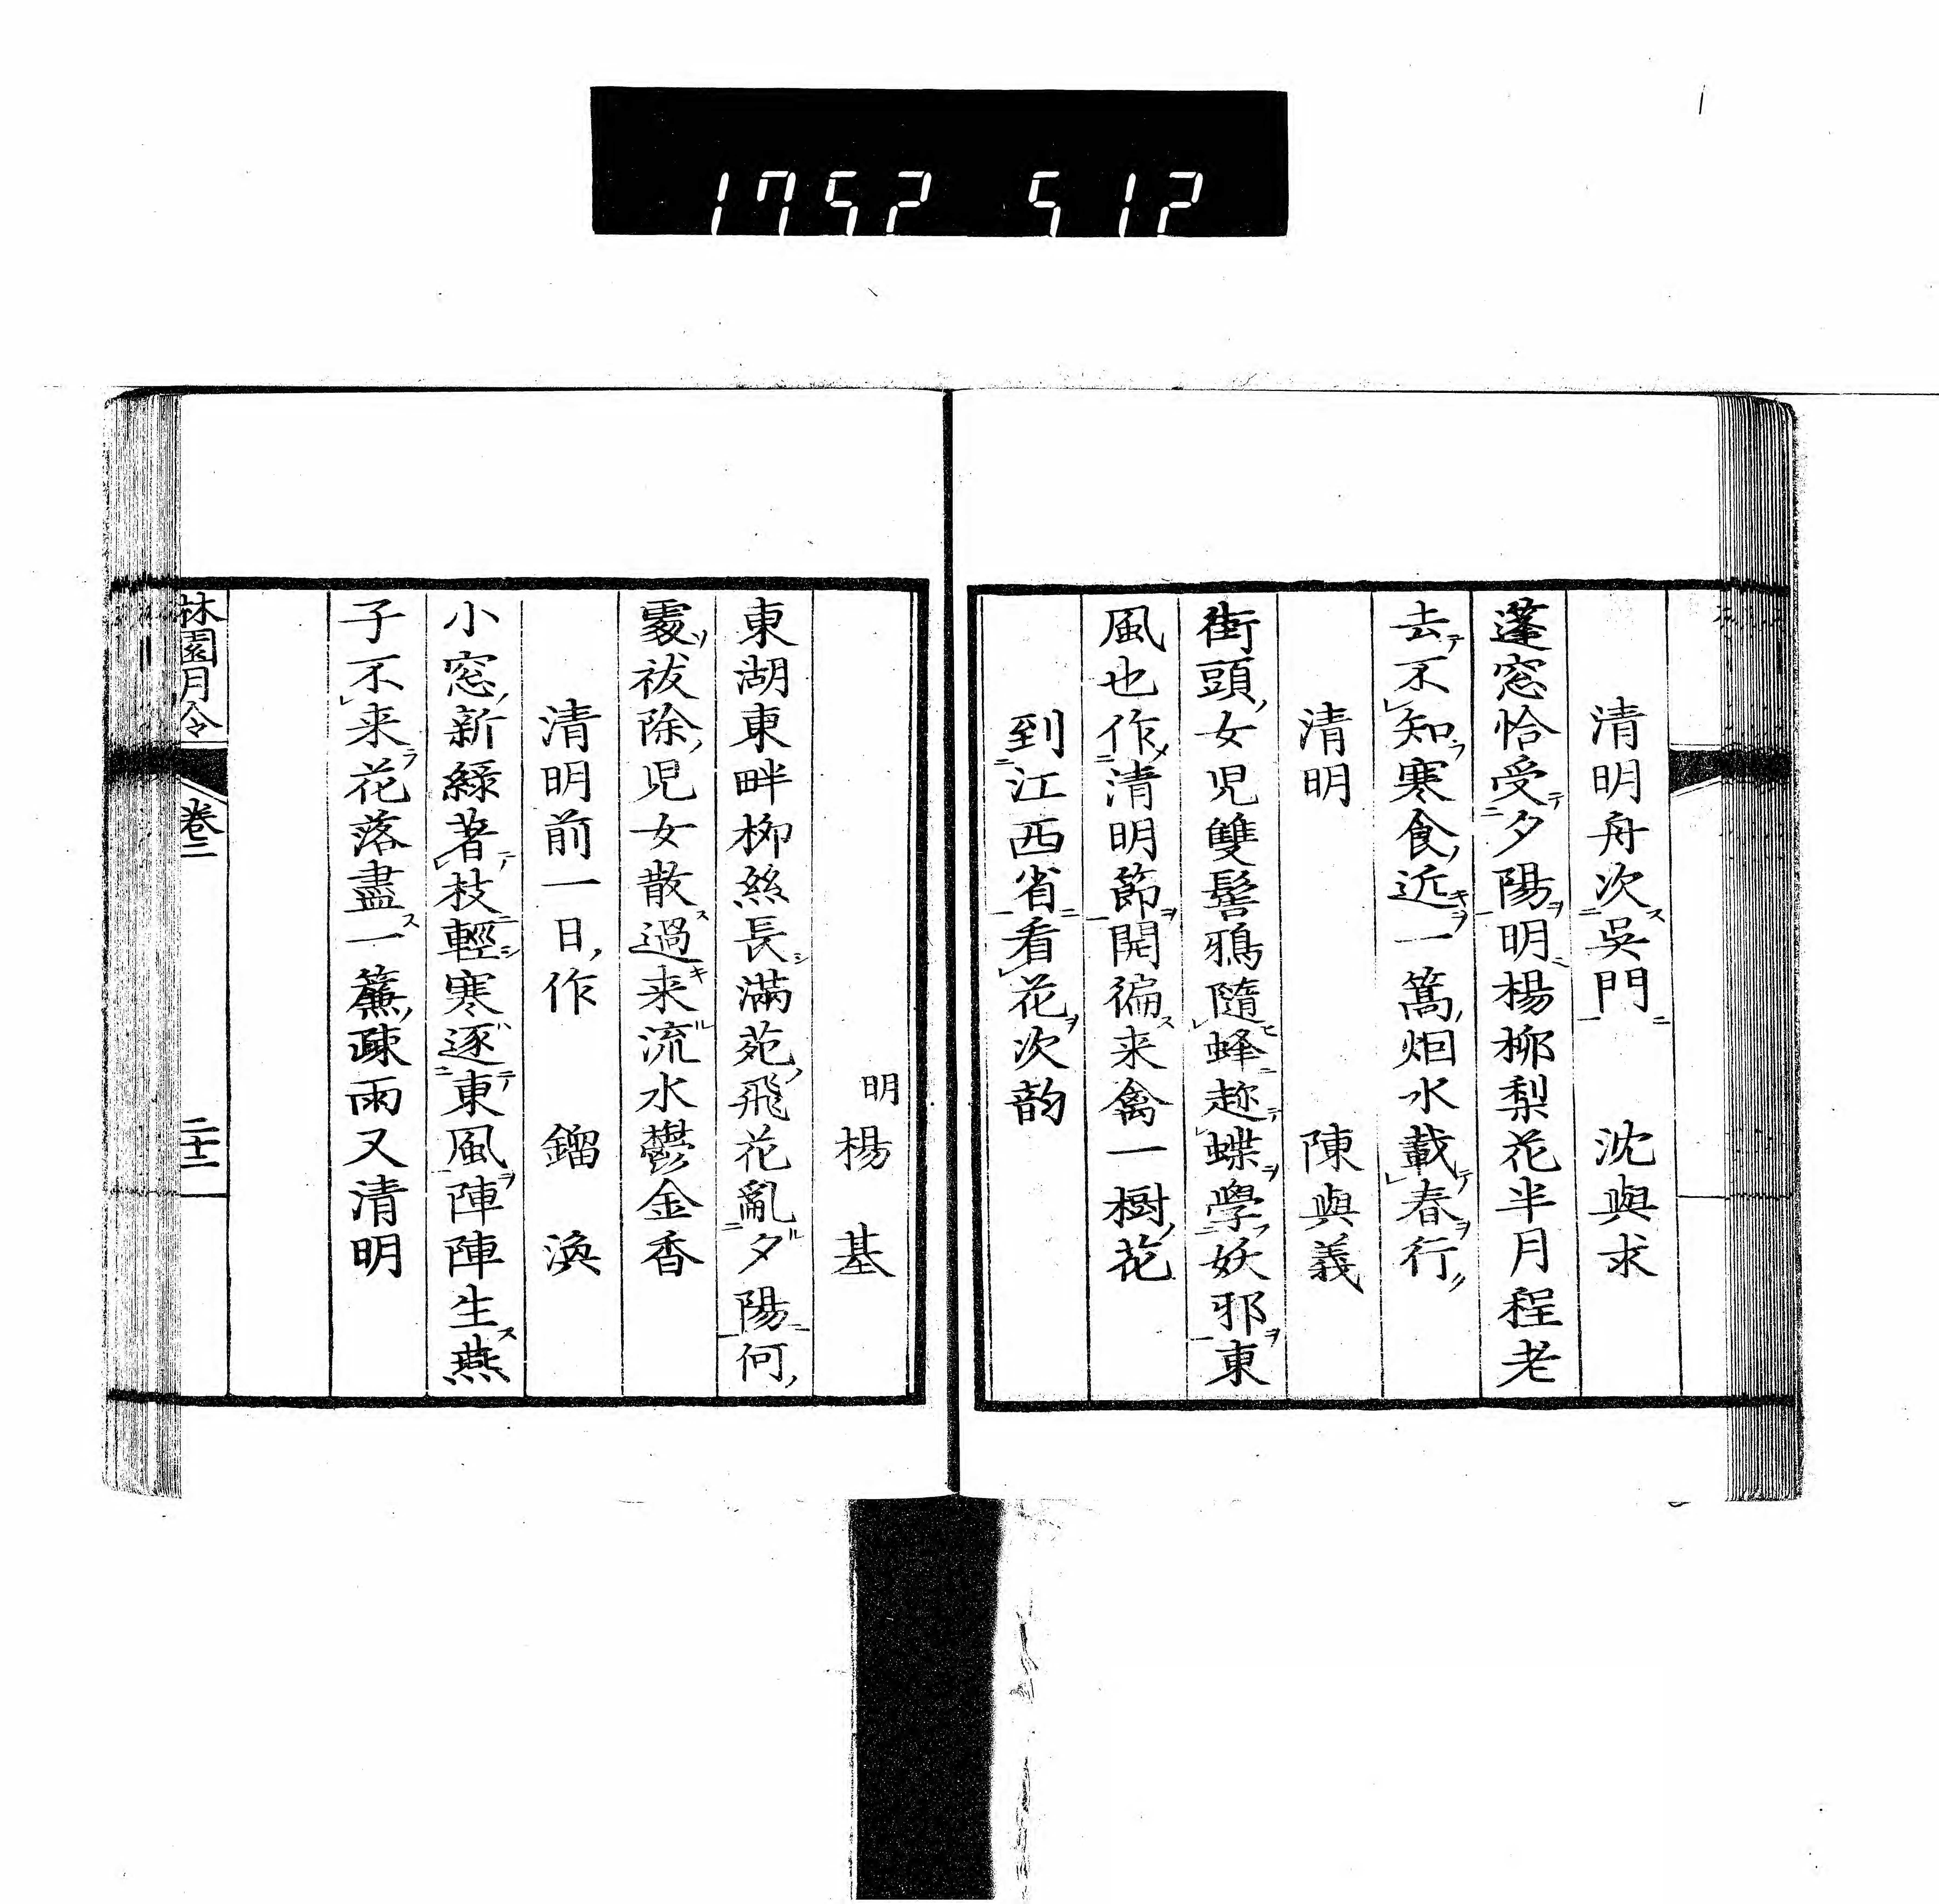 1752 512
清明舟次吳門 沈與求
蓬窓恰受夕陽明楊柳梨花半月程老
去不知寒食近一篙烟水載春行
清明 陳與義
街頭女児雙髻鴉隨蜂趂蝶學妖邪東
風也作清明節開徧来禽一樹花
到江西省看花次韵
明 楊基
東湖東畔柳絲長滿苑飛花亂夕陽何
處祓除児女散過来流水鬱金香
清明前一日作 鎦渙
小窓新緑著枝輕寒逐東風陣陣生燕
子不来花落盡一簾疎雨又清明
林園月令
卷二
二十一